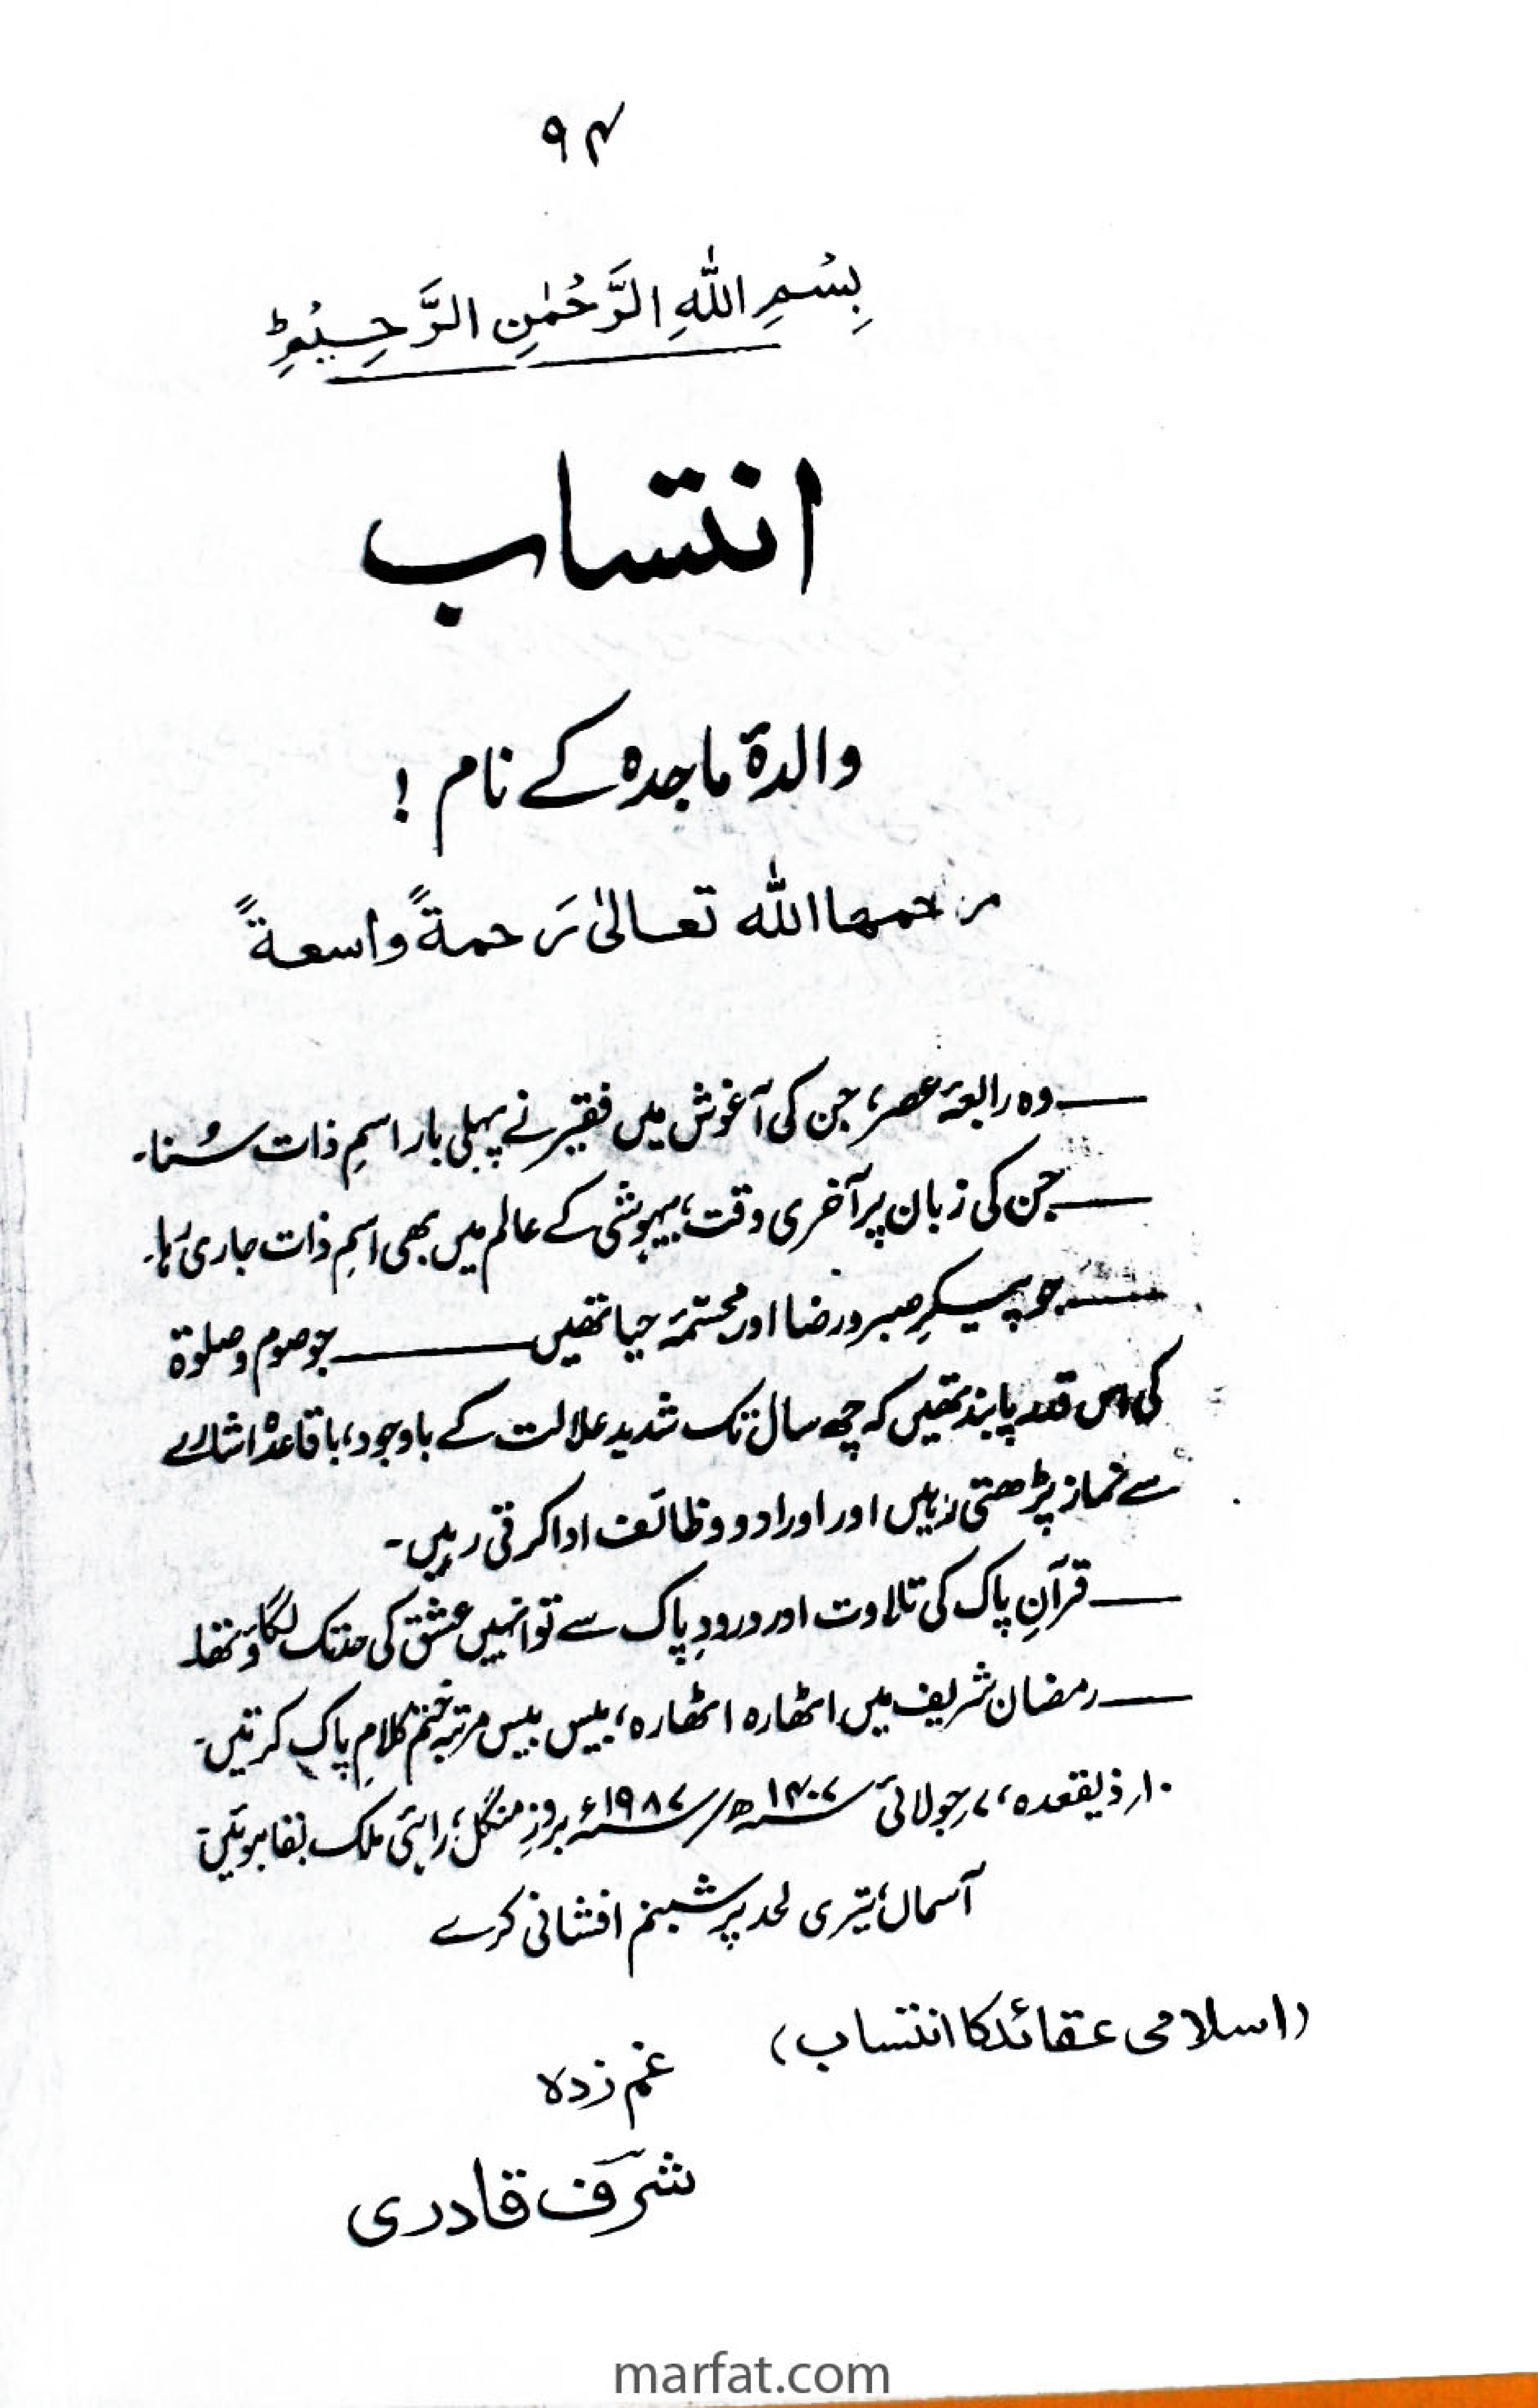 ۹۴
بِسْمِ اللّٰهِ الرَّحْمٰنِ الرَّحِيْمِ ط
انتساب
والدۃ ماجدہ کے نام !
رحمها الله تعالىٰ رَحمةً واسعةً
——وہ رابعۂ عصر، جن کی آغوش میں فقیر نے پہلی بار اسمِ ذات سُنا۔
——جن کی زبان پر آخری وقت، بیہوشی کے عالم میں بھی اسمِ ذات جاری رہا۔
——جو پیکرِ صبر و رضا اور مجسّمۂ حیا تھیں——جو صوم و صلوٰۃ
کی اس قدر پابند تھیں کہ چھ سال تک شدید علالت کے باوجود، باقاعدہ اشارے
سے نماز پڑھتی رہیں اور اوراد و وظائف ادا کرتی رہیں۔
——قرآنِ پاک کی تلاوت اور درودِ پاک سے تو انہیں عشق کی حد تک لگاؤ تھا۔
——رمضان شریف میں اٹھارہ اٹھارہ، بیس بیس مرتبہ ختم کلامِ پاک کرتیں۔
۱۰ر ذیقعدہ، ۷ر جولائی ۱۴۰۷ھ/ ۱۹۸۷ء بروزِ منگل، راہیٔ ملک بقا ہوئیں۔
آسماں، تیری لحد پر شبنم افشانی کرے
(اسلامی عقائد کا انتساب)
غم زدہ
شرف قادری
marfat.com